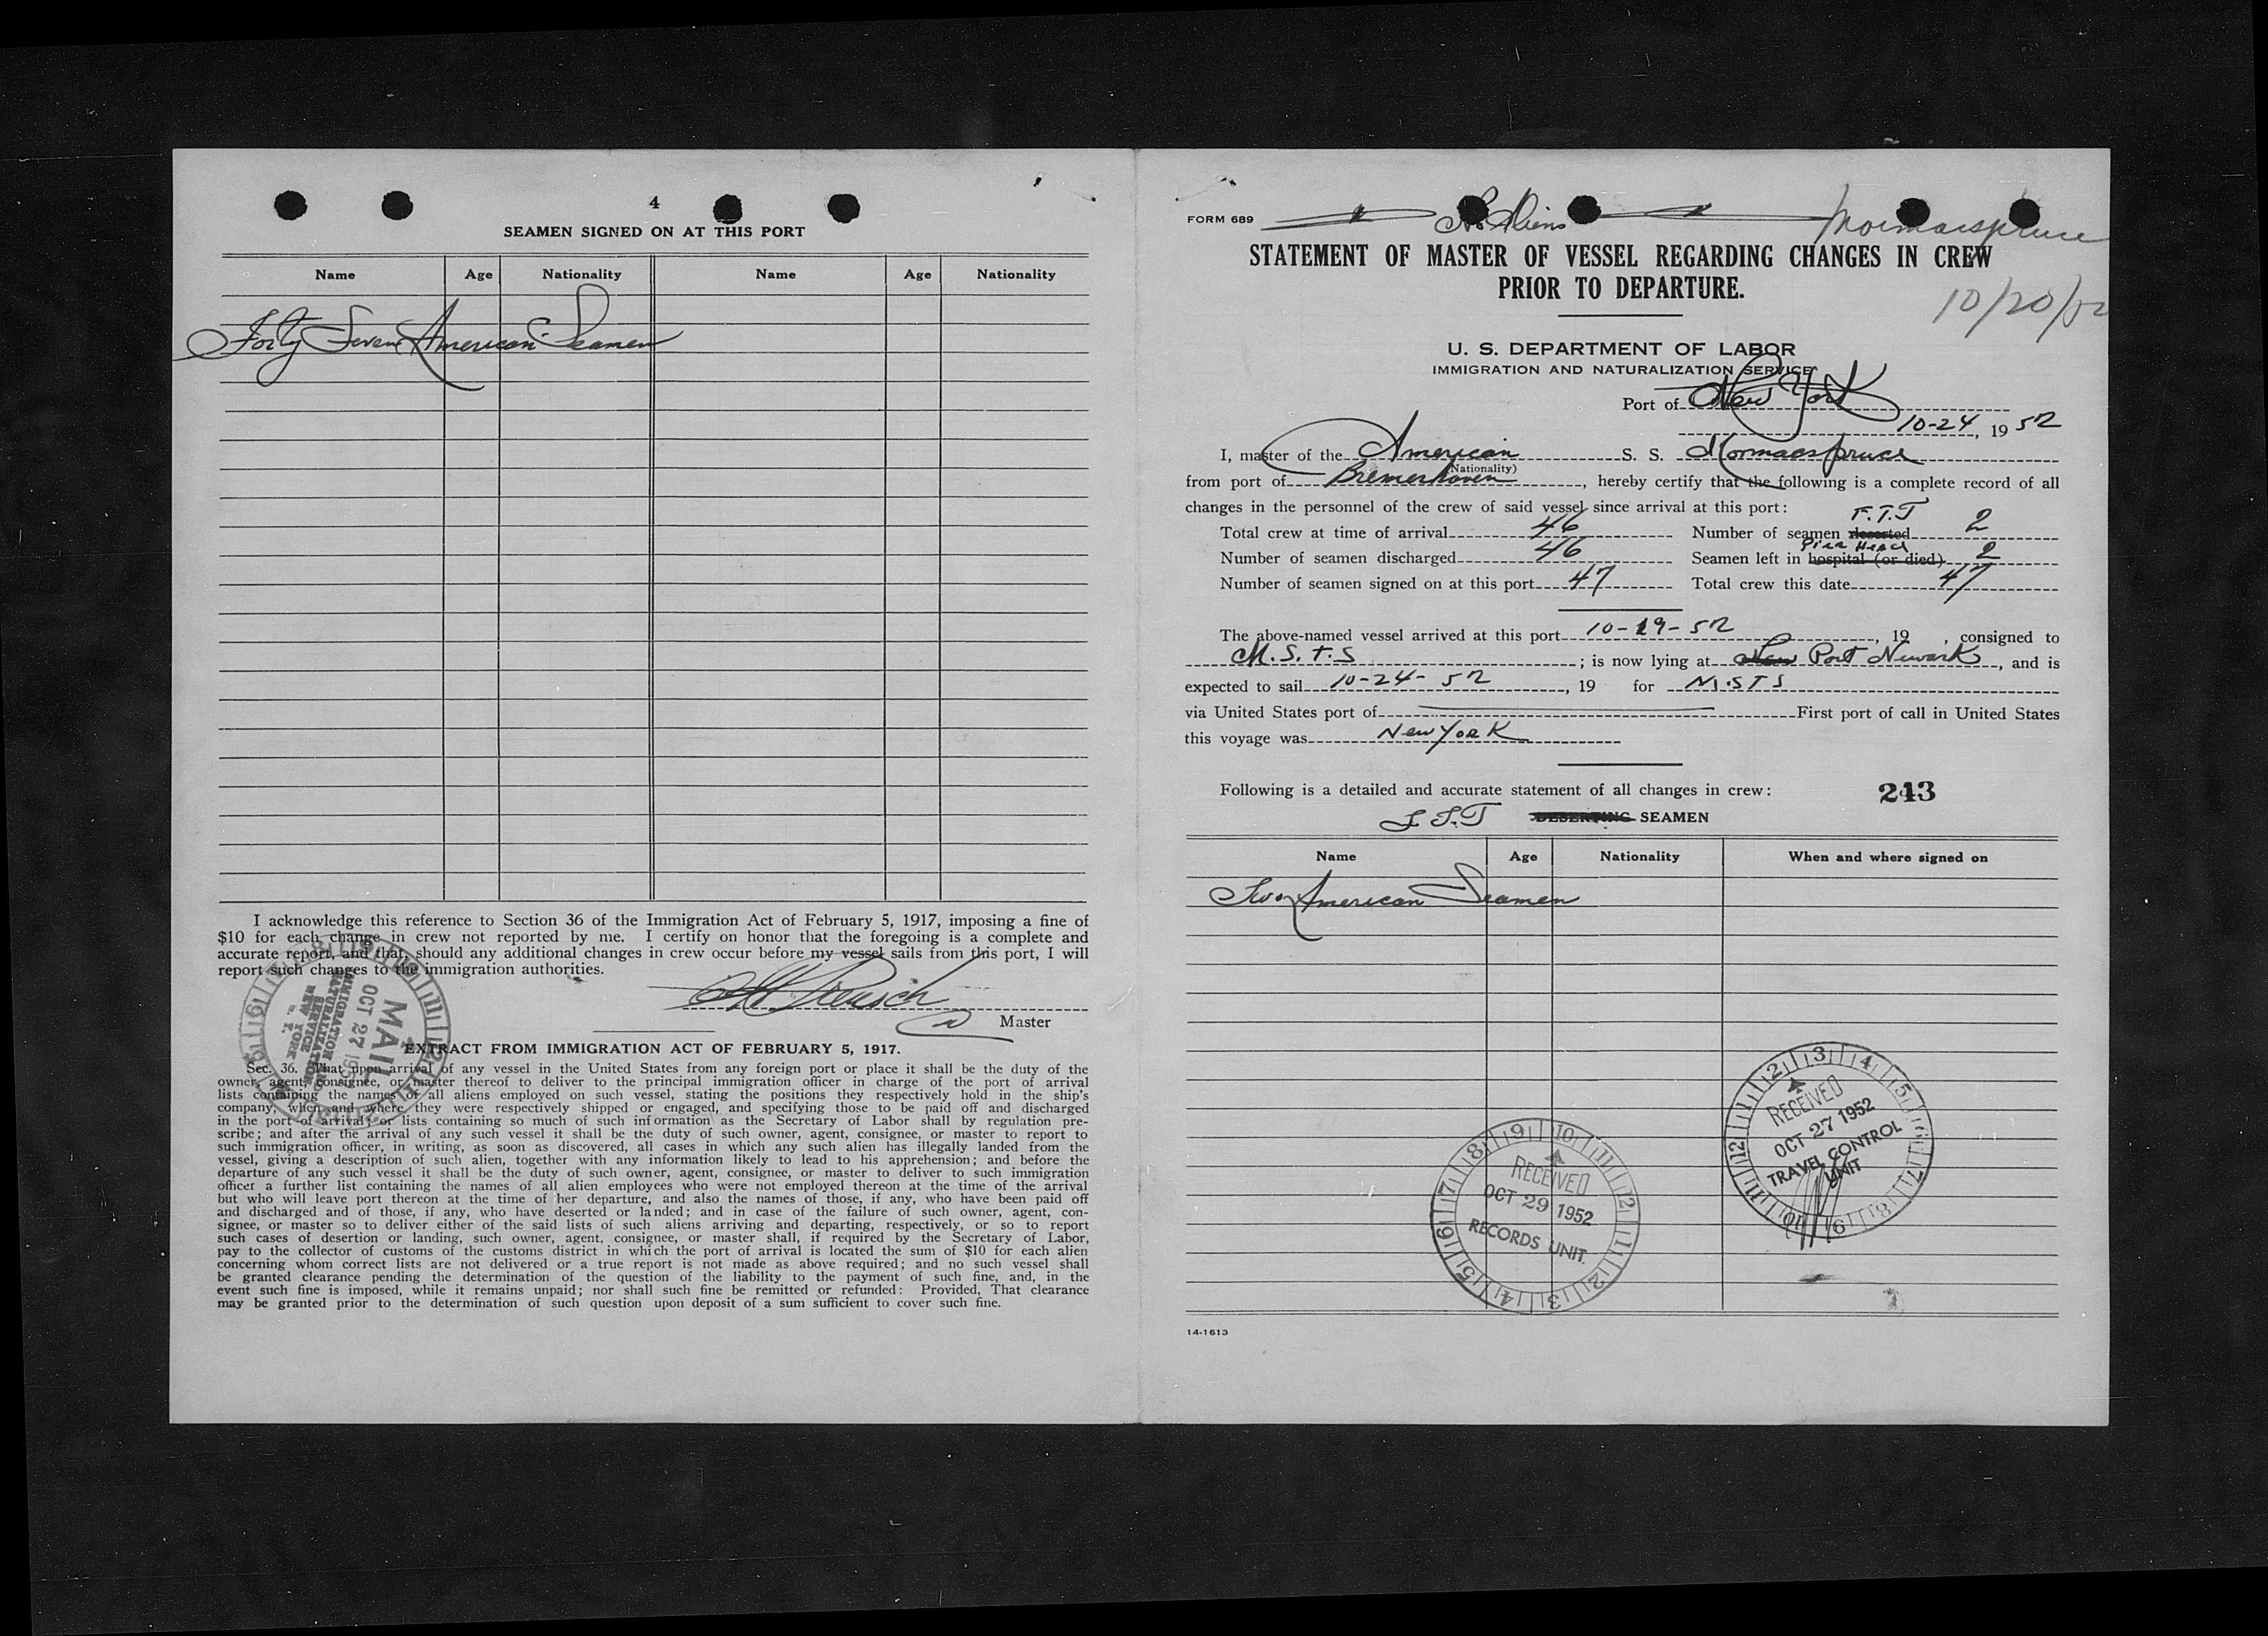 4
SEAMEN SIGNED ON AT THIS PORT
Name Age Nationality Name Age Nationality
Forty Seven American Seamen
I acknowledge this reference to Section 36 of the Immigration Act of February 5, 1917, imposing a fine of
$10 for each change in crew not reported by me. I certify on honor that the foregoing is a complete and
accurate report, and that, should any additional changes in crew occur before my vessel sails from this port, I will
report such changes to the immigration authorities.
Master
MAIL
OCT 27 195
IMMIGRATION AND
NATURALIZATION
SERVICE
NEW YORK
N. Y.
EXTRACT FROM IMMIGRATION ACT OF FEBRUARY 5, 1917.
Sec. 36. That upon arrival of any vessel in the United States from any foreign port or place it shall be the duty of the
owner, agent, consignee, or master thereof to deliver to the principal immigration officer in charge of the port of arrival
lists containing the names of all aliens employed on such vessel, stating the positions they respectively hold in the ship's
company, when and where they were respectively shipped or engaged, and specifying those to be paid off and discharged
in the port of arrival; or lists containing so much of such information as the Secretary of Labor shall by regulation pre-
scribe; and after the arrival of any such vessel it shall be the duty of such owner, agent, consignee, or master to report to
such immigration officer, in writing, as soon as discovered, all cases in which any such alien has illegally landed from the
vessel, giving a description of such alien, together with any information likely to lead to his apprehension; and before the
departure of any such vessel it shall be the duty of such owner, agent, consignee, or master to deliver to such immigration
officer a further list containing the names of all alien employees who were not employed thereon at the time of the arrival
but who will leave port thereon at the time of her departure, and also the names of those, if any, who have been paid off
and discharged and of those, if any, who have deserted or landed; and in case of the failure of such owner, agent, con-
signee, or master so to deliver either of the said lists of such aliens arriving and departing, respectively, or so to report
such cases of desertion or landing, such owner, agent, consignee, or master shall, if required by the Secretary of Labor,
pay to the collector of customs of the customs district in which the port of arrival is located the sum of $10 for each alien
concerning whom correct lists are not delivered or a true report is not made as above required; and no such vessel shall
be granted clearance pending the determination of the question of the liability to the payment of such fine, and, in the
event such fine is imposed, while it remains unpaid; nor shall such fine be remitted or refunded: Provided, That clearance
may be granted prior to the determination of such question upon deposit of a sum sufficient to cover such fine.
FORM 689 No Aliens Mormacspruce
STATEMENT OF MASTER OF VESSEL REGARDING CHANGES IN CREW
PRIOR TO DEPARTURE.
10/20/52
U. S. DEPARTMENT OF LABOR
IMMIGRATION AND NATURALIZATION SERVICE
Port of New York
10-24, 19 52
I, master of the American S. S. Mormacspruce
(Nationality)
from port of Bremerhaven, hereby certify that the following is a complete record of all
changes in the personnel of the crew of said vessel since arrival at this port:
F.T.J
Total crew at time of arrival 46 Number of seamen deserted 2
Pier Head
Number of seamen discharged 46 Seamen left in hospital (or died) 2
Number of seamen signed on at this port 47 Total crew this date 47
The above-named vessel arrived at this port 10-19-52, 19 , consigned to
M.S.T.S ; is now lying at New Port Newark, and is
expected to sail 10-24-52, 19 for M.S.T.S
via United States port of First port of call in United States
this voyage was New York
Following is a detailed and accurate statement of all changes in crew: 243
F.T.J DESERTING SEAMEN
Name Age Nationality When and where signed on
Two American Seamen
RECEIVED
OCT 27 1952
TRAVEL CONTROL
UNIT
RECEIVED
OCT 29 1952
RECORDS UNIT
14-1613